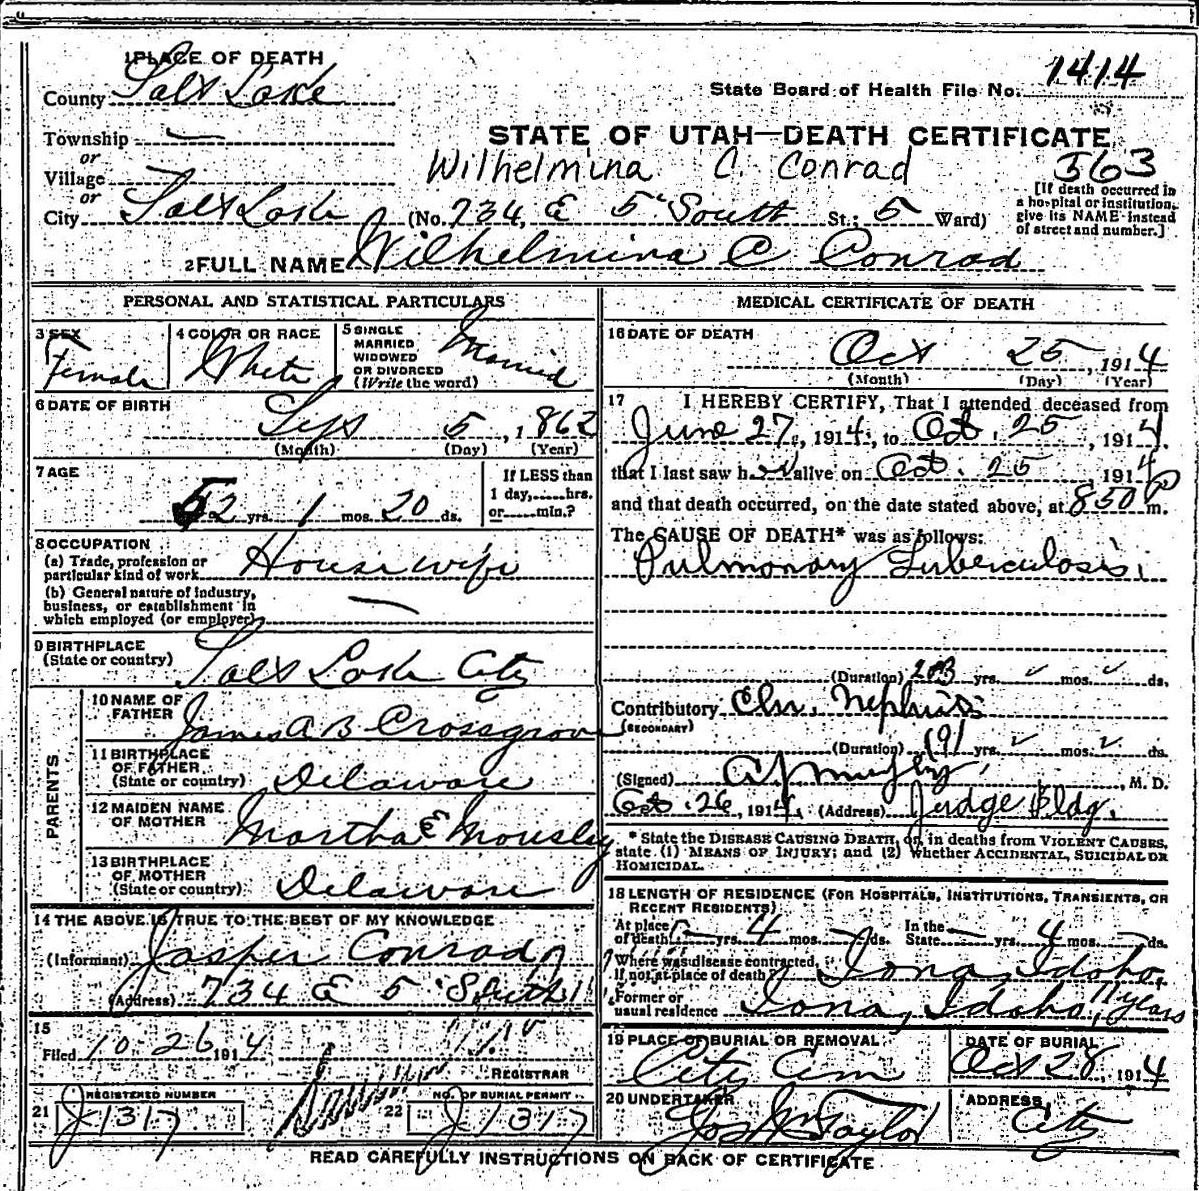 1 PLACE OF DEATH
1414
County Salt Lake
State Board of Health File No.
Township —
STATE OF UTAH—DEATH CERTIFICATE
or
Village
Wilhelmina C. Conrad 563
or
City Salt Lake (No. 734 E 5" South St.; 5 Ward)
[If death occurred in
a hospital or institution,
give its NAME instead
of street and number.]
2 FULL NAME Wilhelmina C Conrad
PERSONAL AND STATISTICAL PARTICULARS
3 SEX
Female
4 COLOR OR RACE
White
5 SINGLE
MARRIED
WIDOWED
OR DIVORCED
(Write the word)
Married
6 DATE OF BIRTH
Sep 5, 1862
(Month) (Day) (Year)
7 AGE
52 yrs. 1 mos. 20 ds.
If LESS than
1 day,......hrs.
or......min.?
8 OCCUPATION
(a) Trade, profession or
particular kind of work
Housewife
(b) General nature of industry,
business, or establishment in
which employed (or employer) —
9 BIRTHPLACE
(State or country) Salt Lake City
PARENTS
10 NAME OF
FATHER James A B Crossgrove
11 BIRTHPLACE
OF FATHER
(State or country) Delaware
12 MAIDEN NAME
OF MOTHER Martha E Mousley
13 BIRTHPLACE
OF MOTHER
(State or country) Delaware
14 THE ABOVE IS TRUE TO THE BEST OF MY KNOWLEDGE
(Informant) Jasper Conrad
(Address) 734 E 5 South
15
Filed 10-26 1914
REGISTRAR
21 REGISTERED NUMBER
J 1317
22 NO. OF BURIAL PERMIT
J 1317
MEDICAL CERTIFICATE OF DEATH
16 DATE OF DEATH
Oct 25, 1914
(Month) (Day) (Year)
17 I HEREBY CERTIFY, That I attended deceased from
June 27, 1914, to Oct. 25, 1914.
that I last saw h er alive on Oct. 25 1914
and that death occurred, on the date stated above, at 850 P m.
The CAUSE OF DEATH* was as follows:
Pulmonary Tuberculosis
(Duration) yrs. mos. ds.
Contributory Chr. Nephritis
(SECONDARY)
(Duration) yrs. mos. ds.
(Signed) M. D.
Oct. 26, 1914. (Address) Judge Bldg.
* State the DISEASE CAUSING DEATH, or, in deaths from VIOLENT CAUSES,
state (1) MEANS OF INJURY; and (2) whether ACCIDENTAL, SUICIDAL OR
HOMICIDAL.
18 LENGTH OF RESIDENCE (FOR HOSPITALS, INSTITUTIONS, TRANSIENTS, OR
RECENT RESIDENTS)
At place
of death — yrs. 4 mos. — ds.
In the
State — yrs. 4 mos. — ds.
Where was disease contracted,
if not at place of death? Iona, Idaho.
Former or
usual residence Iona, Idaho, 11 years
19 PLACE OF BURIAL OR REMOVAL
City Cem
DATE OF BURIAL
Oct 28, 1914
20 UNDERTAKER
Jos Wm Taylor
ADDRESS
City
READ CAREFULLY INSTRUCTIONS ON BACK OF CERTIFICATE